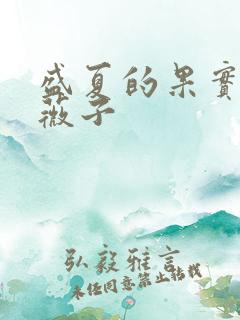 盛夏的果實
薇子
弘毅雅言
未经同意禁止转载